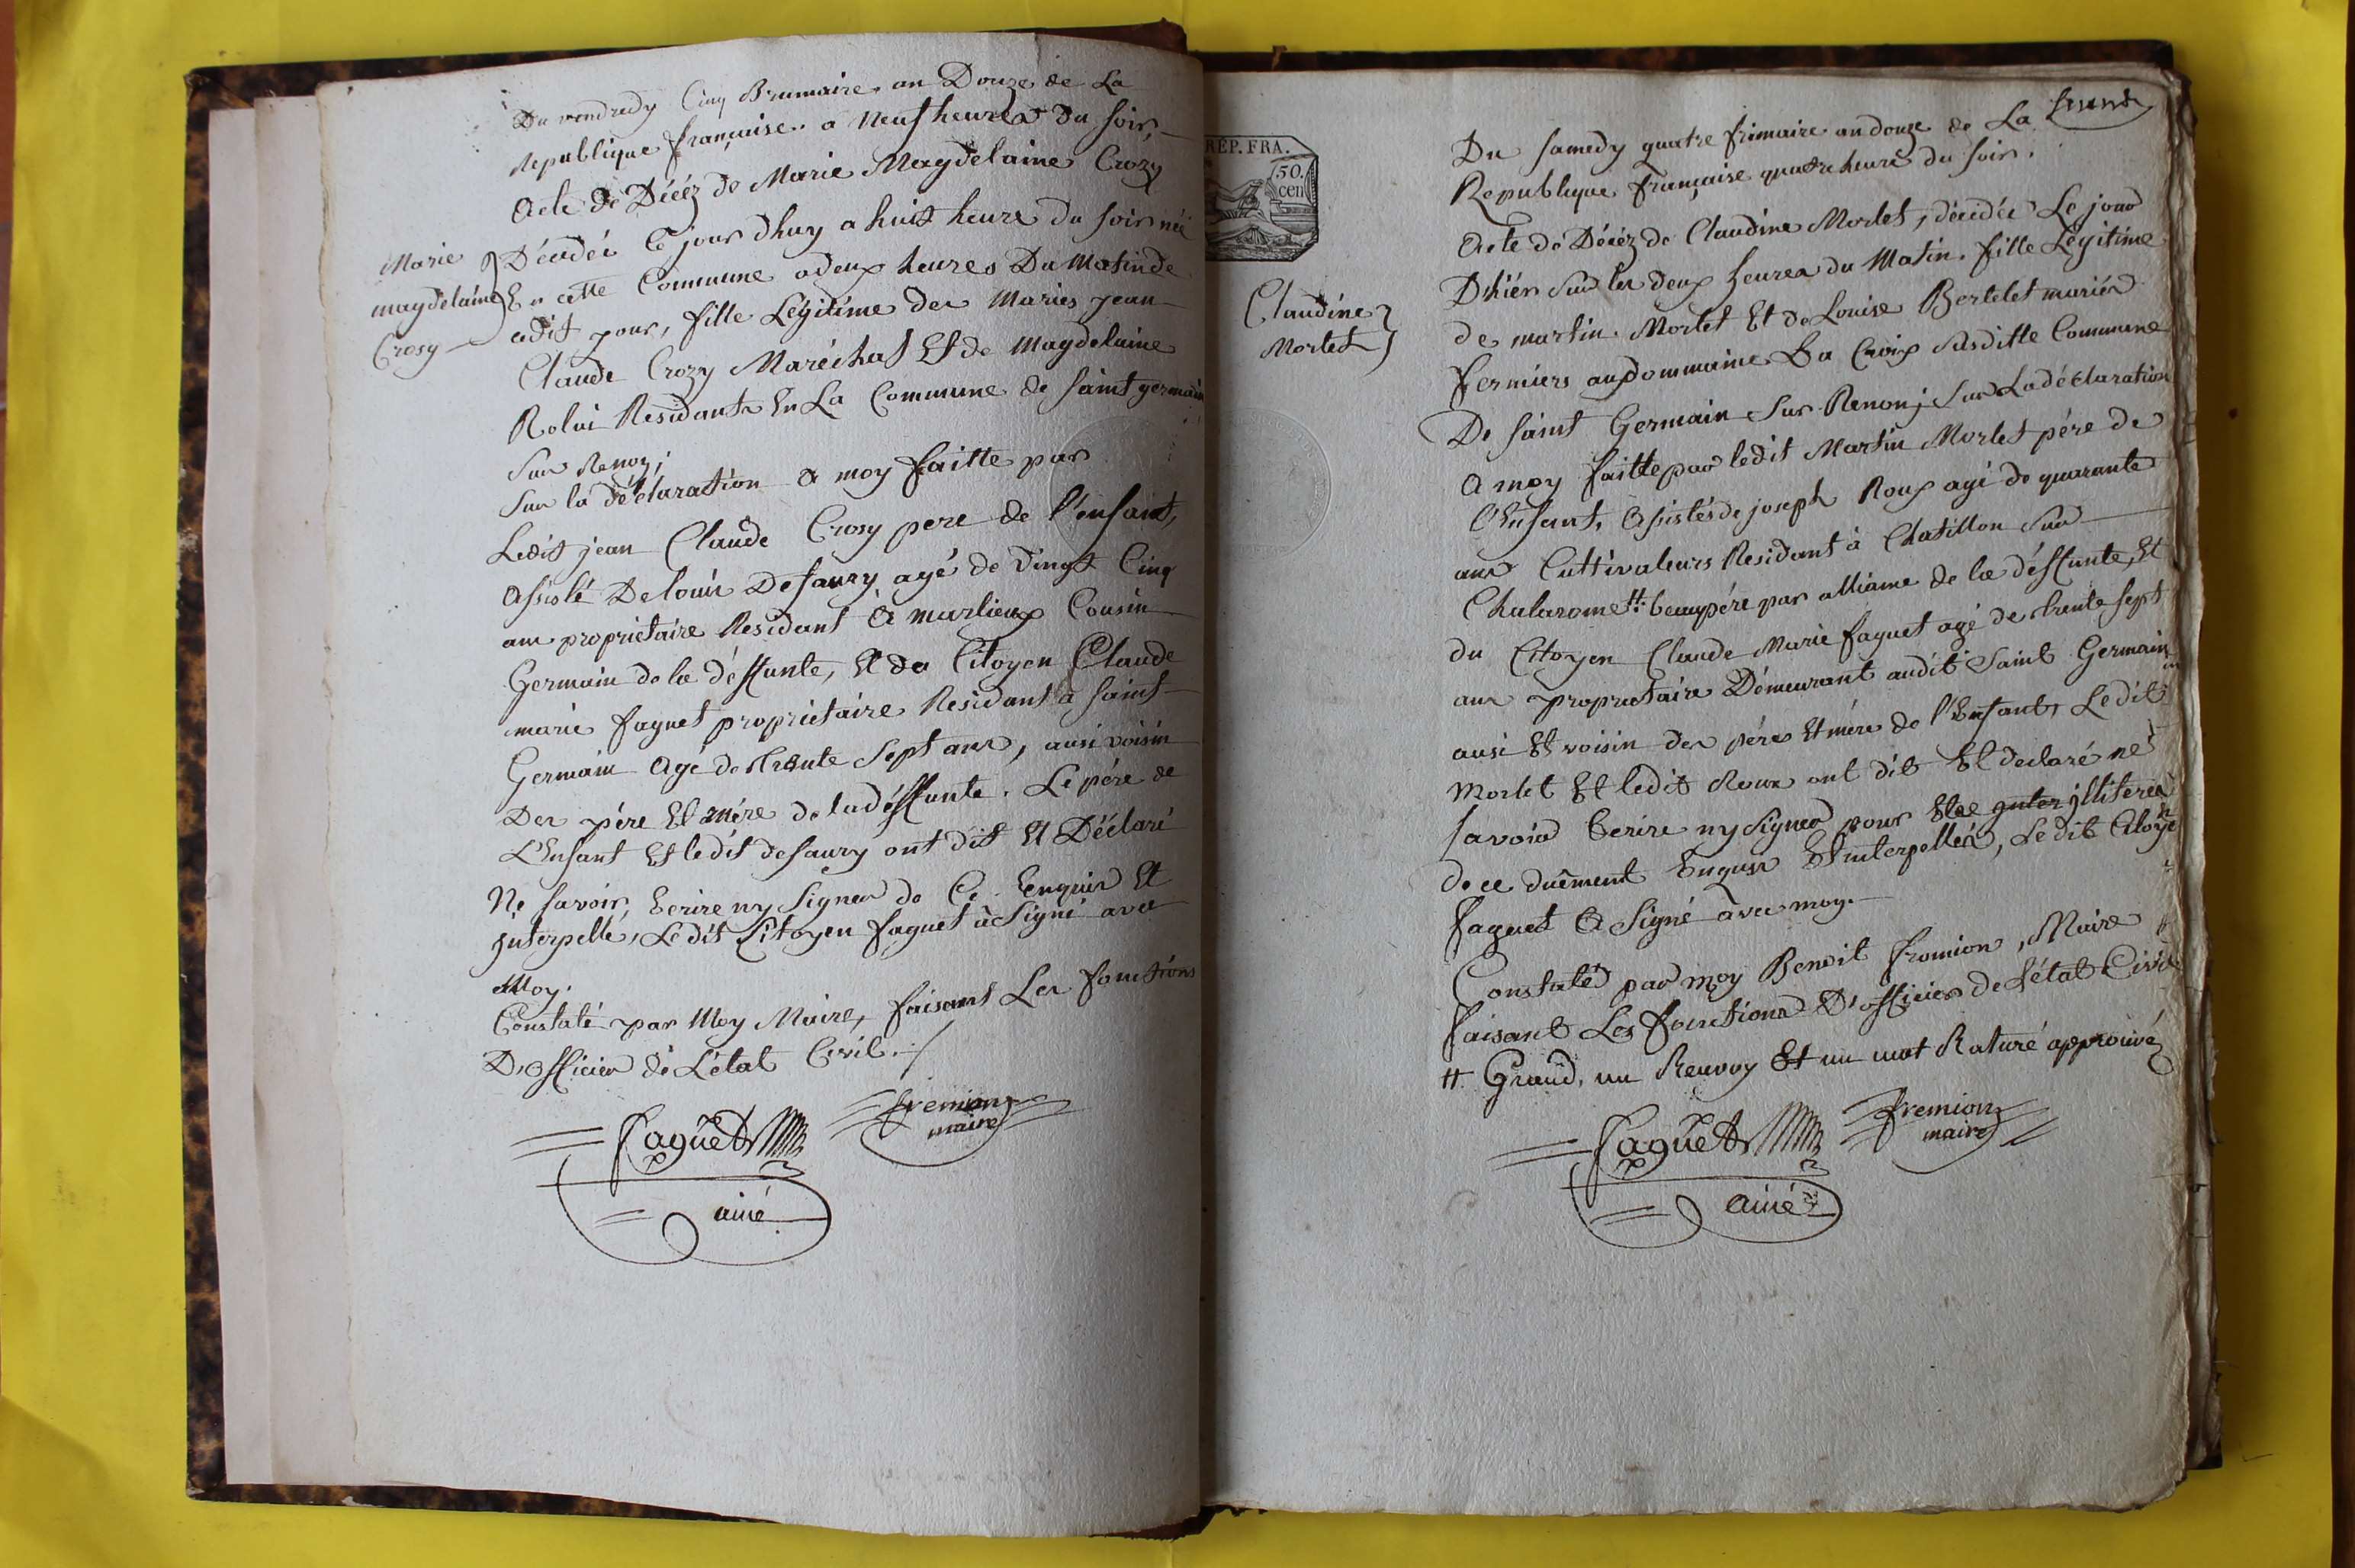 Du vendredy Cinq Brumaire an Douze de La
Republique française a neuf heures du soir,
Acte de Décéz de Marie Magdelaine Crozy
Décédéé Ce jour dhuy a huit heure du soir néé
En cette Commune a deux heures Du Matin de
cedit jour, fille Légitime des Mariés jean
Claude Crozy Maréchal Et de Magdelaine
Rolui Residants En La Commune de saint germain
sur Renon;
Sur la déclaration a moy faitte par
Ledit jean Claude Crosy pere de l'enfant,
Assisté De louis Desaury agé de vingt Cinq
ans proprietaire Residant A marlieux Cousin
Germain de la deffunte, Et du Citoyen Claude
marie faguet proprietaire Residant a saint
Germain Agé de trente Sept ans, ausi voisin
Des pére Et mére de la déffunte. Le pére de
L'Enfant Et ledit desaury ont dit Et Déclaré
Ne savoir Ecrire ny Signer de Ce Enquis Et
jnterpellé, Le dit Citoyen faguet à Signé avec
Moy.
Constaté par Moy Maire, faisant Les fonctions
D'officier de L'état Civil.
Marie
magdelaine
Crosy
faguet
ainé
fremion
maire
RÉP. FRA.
50.
cen
Claudine
Morlet
Du samedy quatre frimaire an douze de La
Republique française quatre heure du soir.
Acte de Décéz de Claudine Morlet, décédéé Le jour
D'hiér sur les deux heures du Matin. fille Légitime
de martin Morlet Et de Louise Bertelet mariés
fermiers au dommaine La Croix Susditte Commune
De saint Germain sur Renon; Sur La déclaration
A moy faitte par ledit Martin Morlet pére de
l'Enfant, Assistés de joseph Roux agé de quarante
ans Cultivateurs Residant à Chatillon sur
Chalarome # beaupére par alliame de la déffunte, Et
du Citoyen Claude Marie faguet agé de trente sept
ans proprietaire Démeurant audit Saint Germain
ausi Et voisin des péres Et mére de l'Enfant, Ledit
Morlet Et ledit Roux ont dit Et declaré ne
savoir Ecrire ny Signer pour Etre jlliterés
de ce duêment Enquis Et interpellés, Ledit Citoyen
faguet A Signé àvec moy.
Constaté par moy Benoit fromion, Maire
faisant Les fonctions D'officier de L'état Civil
# Grand, un Renvoy Et un mot Raturé approuvéz
faguet
ainé
fremion
maire